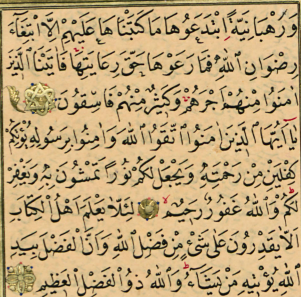 وَرَهْبَانِيَّةً ابْتَدَعُوهَا مَا كَتَبْنَاهَا عَلَيْهِمْ اِلَّا ابْتِغَاءَ
رِضْوَانِ اللّٰهِ فَمَا رَعَوْهَا حَقَّ رِعَايَتِهَا فَاٰتَيْنَا الَّذِينَ
اٰمَنُوا مِنْهُمْ اَجْرَهُمْ وَكَثِيرٌ مِنْهُمْ فَاسِقُونَ
يَا اَيُّهَا الَّذِينَ اٰمَنُوا اتَّقُوا اللّٰهَ وَاٰمِنُوا بِرَسُولِهِ يُؤْتِكُمْ
كِفْلَيْنِ مِنْ رَحْمَتِهِ وَيَجْعَلْ لَكُمْ نُورًا تَمْشُونَ بِهِ وَيَغْفِرْ
لَكُمْ وَاللّٰهُ غَفُورٌ رَحِيمٌ لِئَلَّا يَعْلَمَ اَهْلُ الْكِتَابِ
اَلَّا يَقْدِرُونَ عَلٰى شَيْءٍ مِنْ فَضْلِ اللّٰهِ وَاَنَّ الْفَضْلَ بِيَدِ
اللّٰهِ يُؤْتِيهِ مَنْ يَشَاءُ وَاللّٰهُ ذُو الْفَضْلِ الْعَظِيمِ